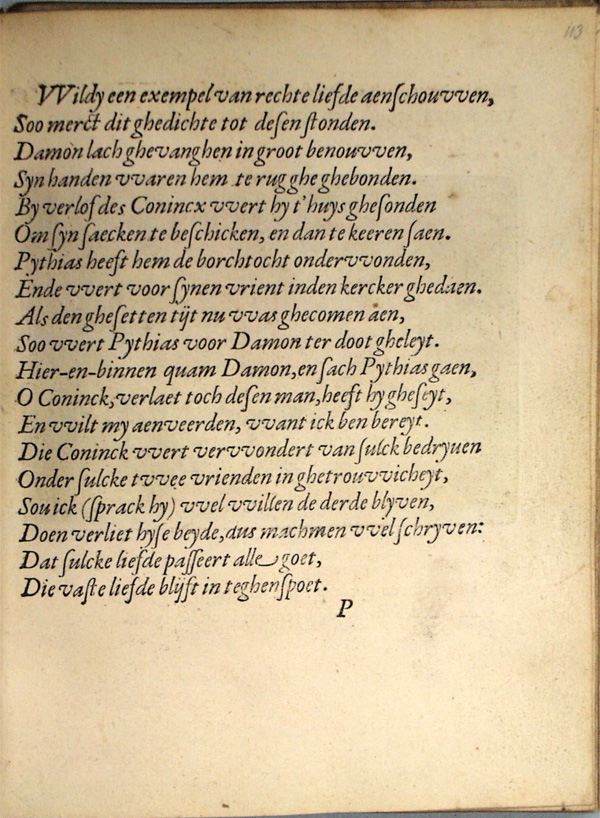 113
VVildy een exempel van rechte liefde aenſchouvven,
Soo merct dit ghedichte tot deſen ſtonden.
Damon lach ghevanghen in groot benouvven,
Syn handen vvaren hem te rugghe ghebonden.
By verlof des Conincx vvert hy t'huys gheſonden
Om ſyn ſaecken te beſchicken, en dan te keeren ſaen.
Pythias heeft hem de borchtocht ondervvonden,
Ende vvert voor ſynen vrient inden kercker ghedaen.
Als den gheſetten tijt nu vvas ghecomen aen,
Soo vvert Pythias voor Damon ter doot gheleyt.
Hier-en-binnen quam Damon, en ſach Pythias gaen,
O Coninck, verlaet toch deſen man, heeft hy gheſeyt,
En vvilt my aenveerden, vvant ick ben bereyt.
Die Coninck vvert vervvondert van ſulck bedryven
Onder ſulcke tvvee vrienden in ghetrouvvicheyt,
Sou ick (ſprack hy) vvel vvillen de derde blyven,
Doen verliet hyſe beyde, dus machmen vvel ſchryven:
Dat ſulcke liefde paſſeert alle goet,
Die vaſte liefde blijft in teghenſpoet.
P